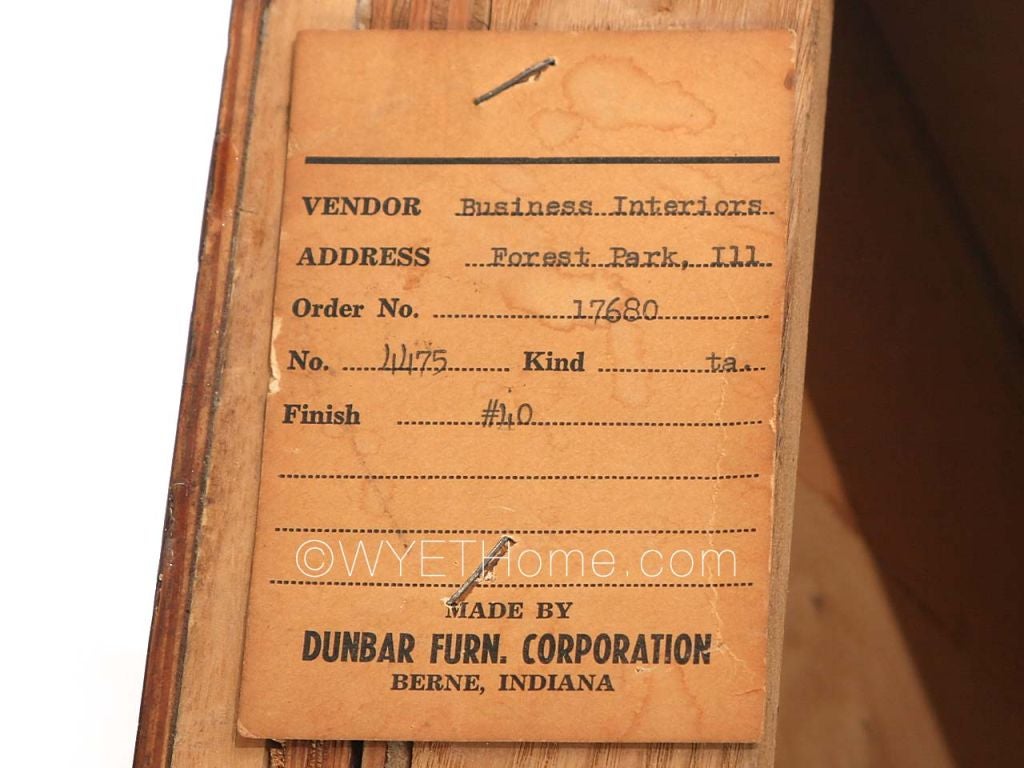 VENDOR Business Interiors
ADDRESS Forest Park, Ill
Order No. 17680
No. 4475 Kind ta.
Finish #40
©WYETHome.com
MADE BY
DUNBAR FURN. CORPORATION
BERNE, INDIANA